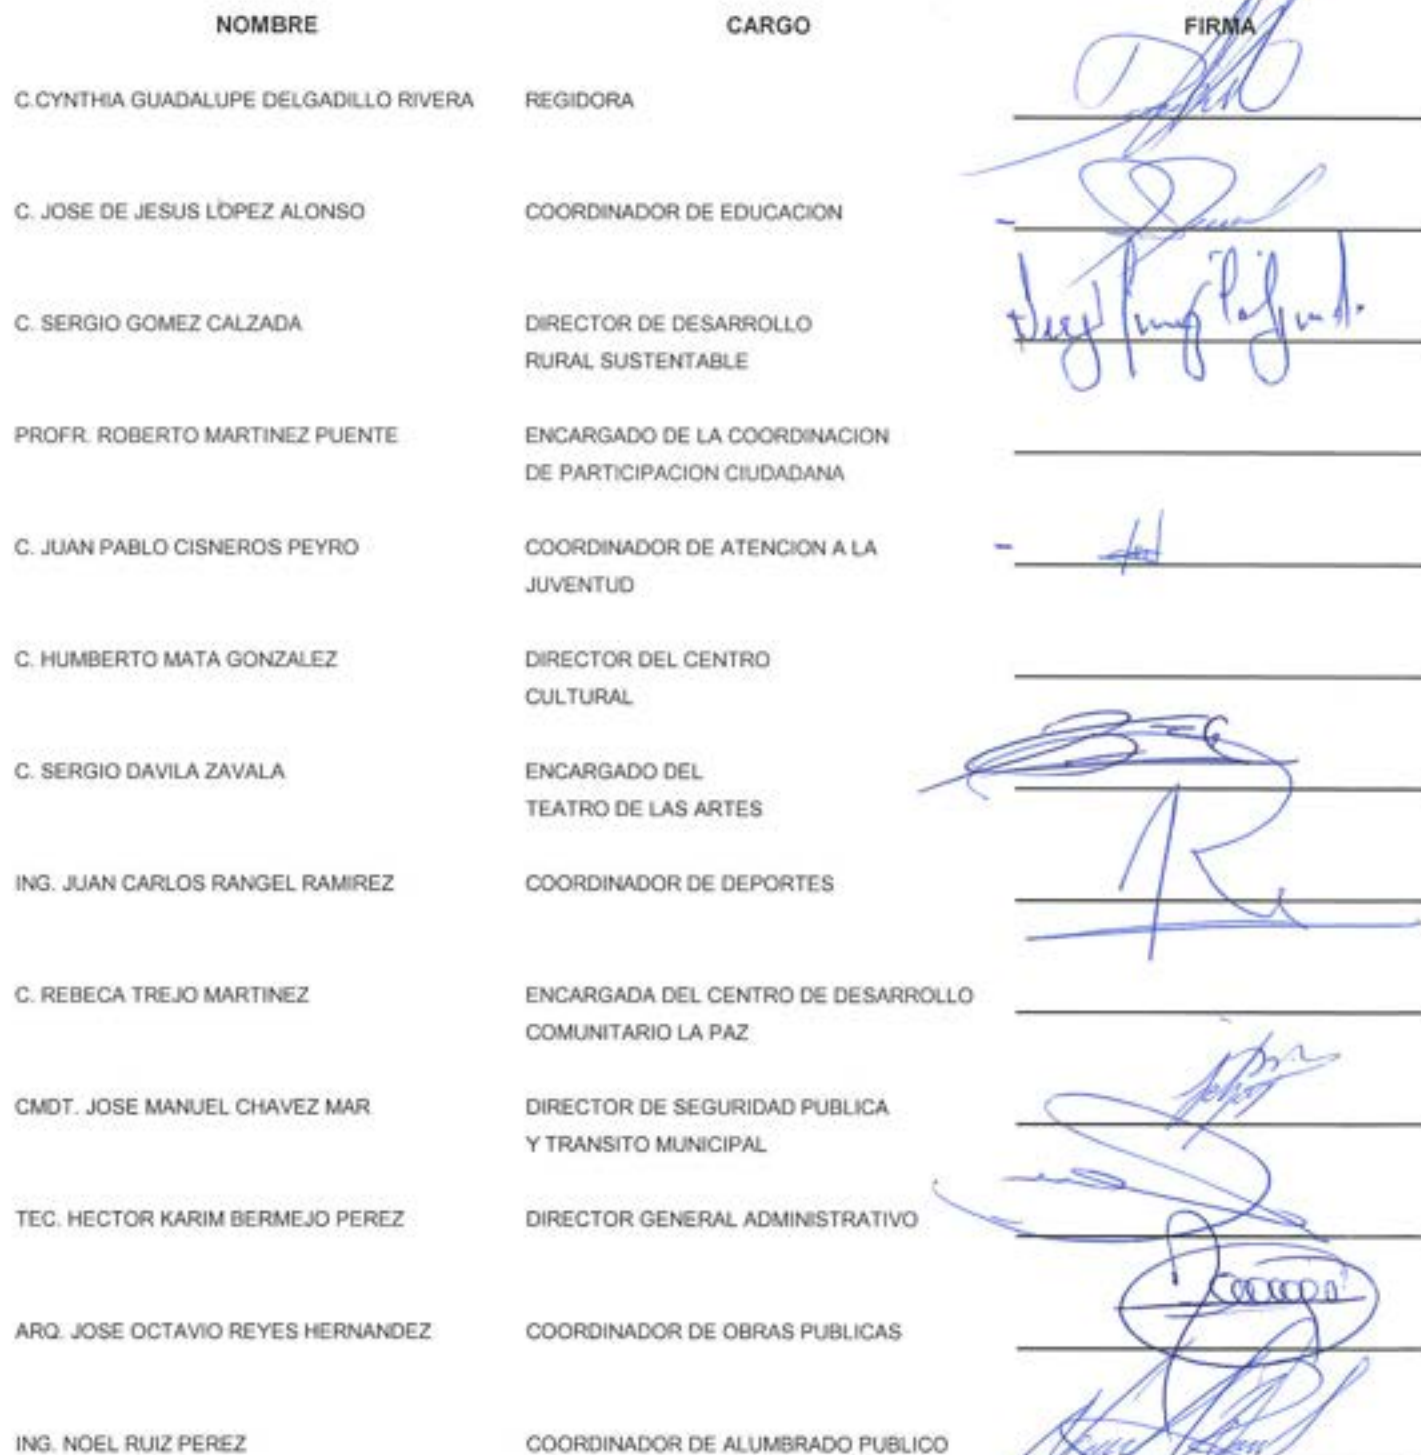 NOMBRE CARGO FIRMA
C.CYNTHIA GUADALUPE DELGADILLO RIVERA REGIDORA
C. JOSE DE JESUS LOPEZ ALONSO COORDINADOR DE EDUCACION
C. SERGIO GOMEZ CALZADA DIRECTOR DE DESARROLLO
RURAL SUSTENTABLE
PROFR. ROBERTO MARTINEZ PUENTE ENCARGADO DE LA COORDINACION
DE PARTICIPACION CIUDADANA
C. JUAN PABLO CISNEROS PEYRO COORDINADOR DE ATENCION A LA
JUVENTUD
C. HUMBERTO MATA GONZALEZ DIRECTOR DEL CENTRO
CULTURAL
C. SERGIO DAVILA ZAVALA ENCARGADO DEL
TEATRO DE LAS ARTES
ING. JUAN CARLOS RANGEL RAMIREZ COORDINADOR DE DEPORTES
C. REBECA TREJO MARTINEZ ENCARGADA DEL CENTRO DE DESARROLLO
COMUNITARIO LA PAZ
CMDT. JOSE MANUEL CHAVEZ MAR DIRECTOR DE SEGURIDAD PUBLICA
Y TRANSITO MUNICIPAL
TEC. HECTOR KARIM BERMEJO PEREZ DIRECTOR GENERAL ADMINISTRATIVO
ARQ. JOSE OCTAVIO REYES HERNANDEZ COORDINADOR DE OBRAS PUBLICAS
ING. NOEL RUIZ PEREZ COORDINADOR DE ALUMBRADO PUBLICO